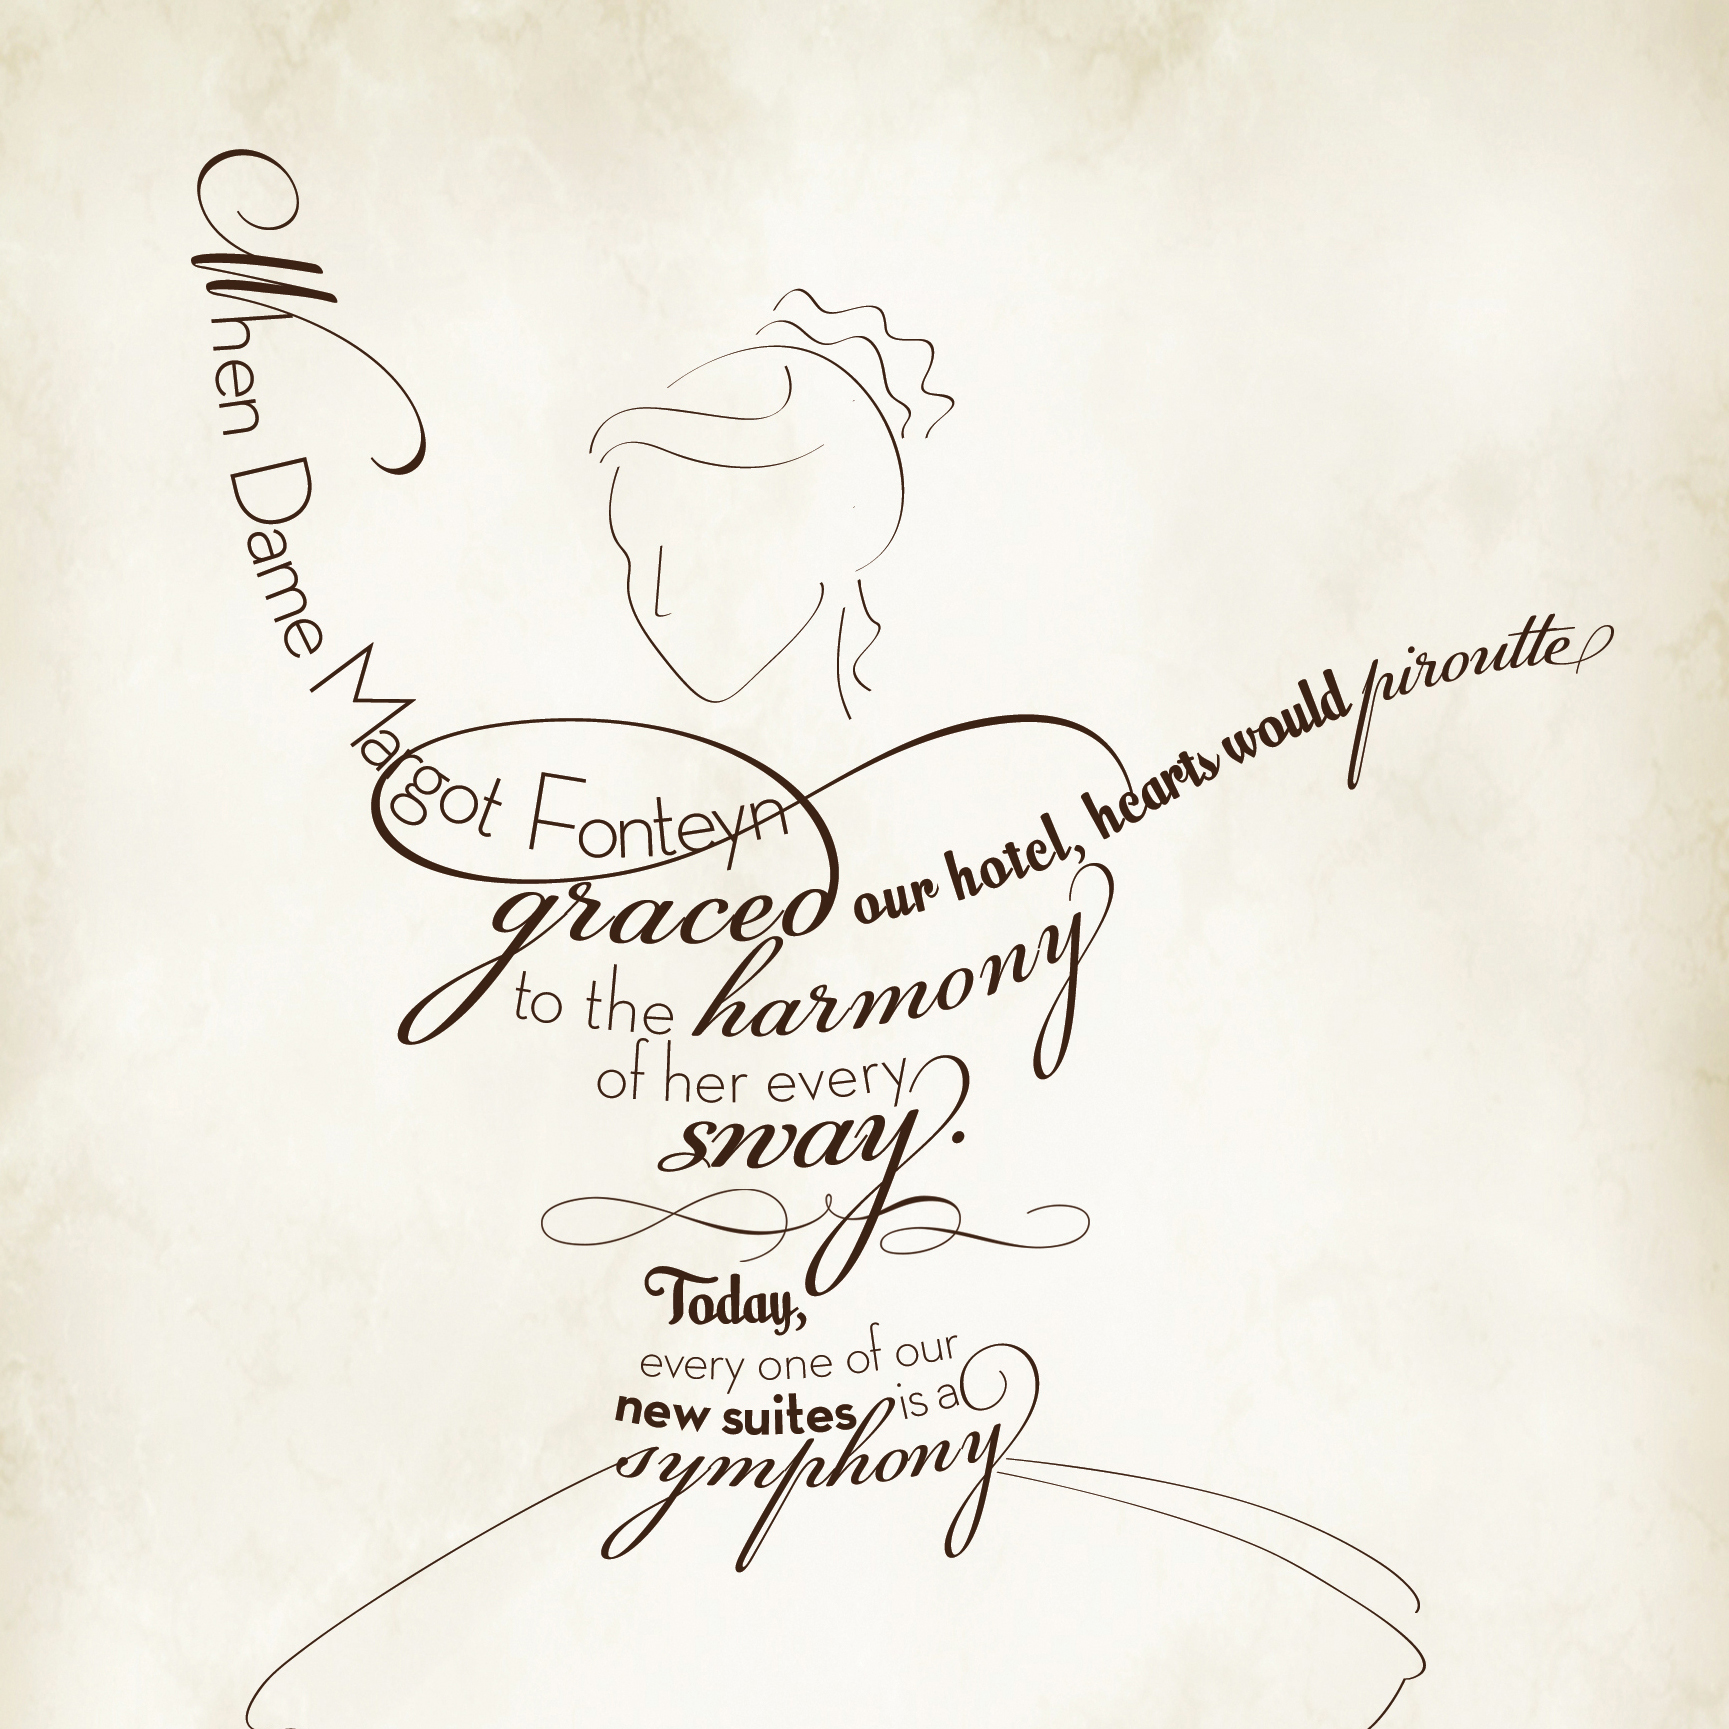 When Dame Margot Fonteyn
graced our hotel, hearts would piroutte
to the harmony
of her every
sway.
Today,
every one of our
new suites is a
symphony